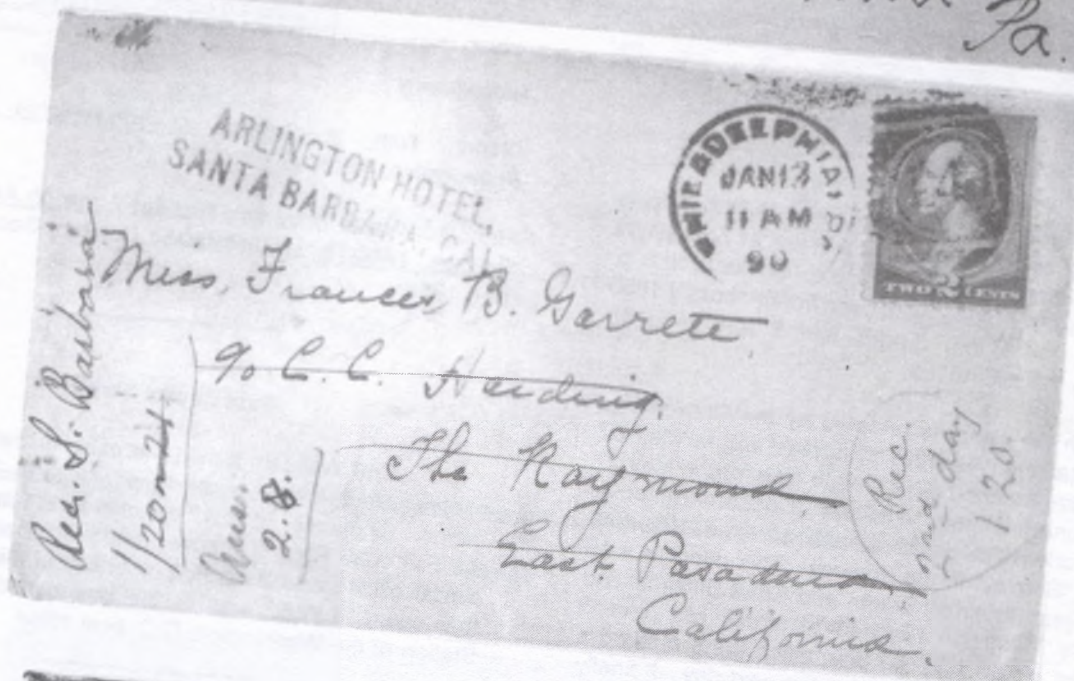 Pa.
ARLINGTON HOTEL,
SANTA BARBARA, CAL.
PHILADELPHIA, PA
JAN 13
11 AM
90
TWO 2 CENTS
Miss, Frances B. Garrett
c/o C. C. Harding.
The Raymond
East Pasadena.
California.
Rec. S. Barbara
1/20 or 21
Ans.
2.8.
Rec.
2nd day
1.20.